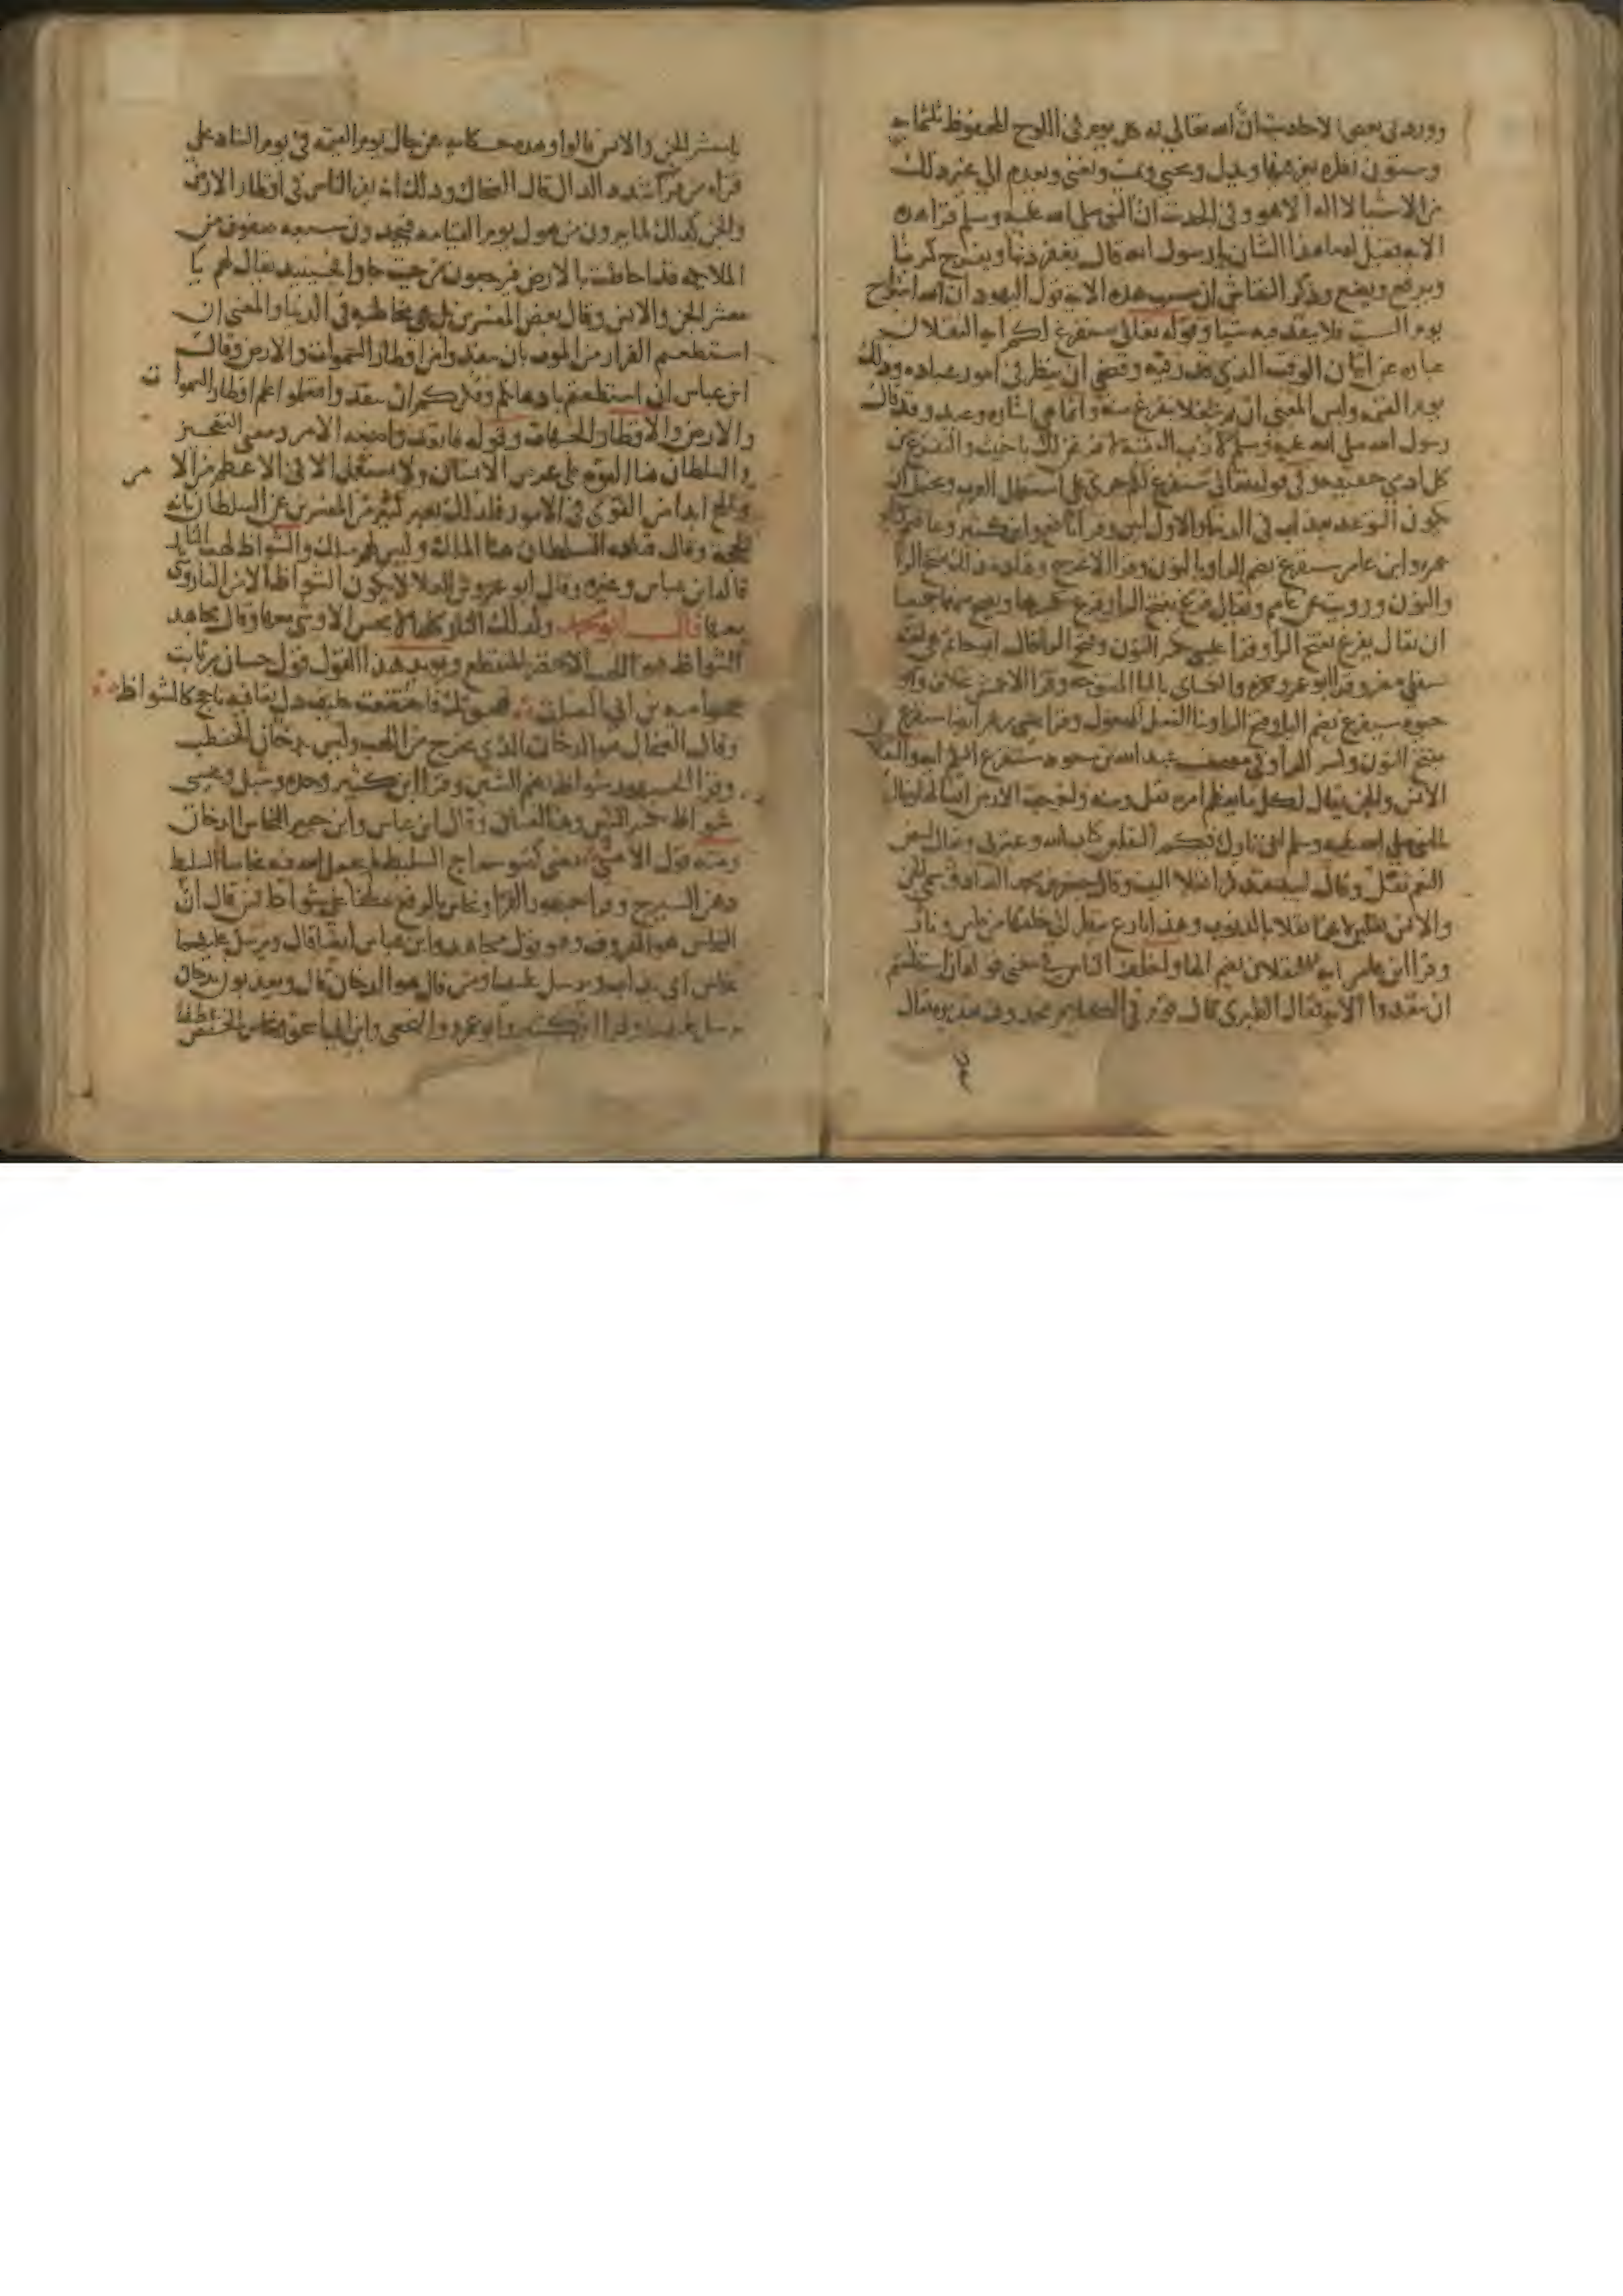 وورد في بعض الاحاديث ان الله تعالى له كل يوم في اللوح المحفوظ ثلثماية
وستون نظره يعز فيها ويذل ويحيي ويميت ويغني ويعدم الى غير ذلك
من الاشيا لا اله الا هو وفي الحديث ان النبي صلى الله عليه وسلم قرا هذه
الايه فقيل له ما هذا الشان يا رسول الله قال يغفر ذنبا ويفرج كربا
ويرفع ويضع وذكر النقاش ان سبب هذه الايه قول اليهود ان الله استراح
يوم السبت فلا ينفذ فيه شيا وقوله تعالى سنفرغ لكم ايه الثقلان
عباره عن اتيان الوقت الذي قدر فيه وقضى ان ينظر في امور عباده وذلك
يوم القيمه وليس المعنى ان ثم شغلا يفرغ منه وانما هي اشاره وعيد وقد قال
رسول الله صلى الله عليه وسلم لازب العقبه لا فرغن لك يا خبيث والتفرغ من
كل ادمي حقيقه وفي قوله تعالى سنفرغ لكم جرى على استعمال العرب ويحتمل ان
يكون التوعد بعذاب في الدنيا والاول ابين وقرا نافع وابن كثير وعاصم وابو
عمرو وابن عامر سنفرغ بضم الرا وبالنون وقرا الاعرج وقتاده ذلك بفتح الرا
والنون ورويت عن عاصم ويقال فرغ بفتح الرا وفرغ بكسرها ويصح منهما جميعا
ان يقال يفرغ بفتح الرا وقرا عيسى بكسر النون وفتح الرا قال ابو حاتم هي لغه
سفلى مضر وقرا ابو عمرو وحمزه والكساي باليا المفتوحه وقرا الاعمش بخلاف وابو
حيوه سيفرغ بضم اليا وفتح الرا وبنا الفعل للمفعول وقرا عيسى بن عمر ايضا سنفرغ
بفتح النون وكسر الرا وفي مصحف عبد الله بن مسعود سنفرغ اليكم ايه والثقلان
الانس والجن ويقال لكل ما يعظم امره ثقل ومنه واخرجت الارض اثقالها وقال
النبي صلى الله عليه وسلم اني تارك فيكم الثقلين كتاب الله وعترتي ويقال لبيض
النعم ثقل وقال لبيد فتذكرا ثقلا البيت وقال جعفر بن محمد الصادق سمي الجن
والانس ثقلين لانهما ثقلا بالذنوب وهذا بارع ينظر الى خلقهما من طين ونار
وقرا ابن عامر ايه الثقلان بضم الها واختلف الناس في معنى قوله ان استطعتم
ان تنفذوا الايه فقال الطبري قال قوم في الكلام محذوف تقديره يقال
يا معشر الجن والانس قالوا وهذه حكايه عن حال يوم القيمه في يوم التناد على
قراه من قرا بتشديد الدال قال الضحاك وذلك انه يفر الناس في اقطار الارض
والجن كذلك لما يرون من هول يوم القيامه فيجدون سبعه صفوف من
الملايكه قد احاطت بالارض فيرجعون من حيث جاوا فحينيذ يقال لهم يا
معشر الجن والانس وقال بعض المفسرين بل هي مخاطبه في الدنيا والمعنى ان
استطعتم الفرار من الموت بان تنفذوا من اقطار السموات والارض وقال
ابن عباس ان استطعتم باذهانكم وفكركم ان تنفذوا فتعلموا علم اقطار السموات
والارض والاقطار الجهات وقوله فانفذوا صيغه الامر ومعنى التعجيز
والسلطان هنا القوه على غرض الانسان ولا يستعمل الا في الاعظم من الامر
والحجج ابدا من القوي في الامور فلذلك يعبر كثير من المفسرين عن السلطان بانه
الحجه وقال قتاده السلطان هنا الملك وليس لهم ملك والشواظ لهب النار
قاله ابن عباس وغيره وقال ابو عمرو بن العلا لا يكون الشواظ الا من النار وشي
معها قال ابو محمد وكذلك النار كلها لا تحس الا وشي معها وقال مجاهد
الشواظ هو اللهب الاخضر المتقطع ويويد هذا القول قول حسان بن ثابت
يهجو اميه بن ابي الصلت هجوتك فاختضعت حليف ذل بقافيه تاجج كالشواظ
وقال الضحاك هو الدخان الذي يخرج من اللهب وليس بدخان الحطب
وقرا الجمهور شواظ بضم الشين وقرا ابن كثير وحده وشبل وعيسى
شواظ بكسر الشين وهما لغتان وقال ابن عباس وابن جبير النحاس الدخان
ومنه قول الاعشى تضي كضو سراج السليط لم يجعل الله فيه نحاسا السليط
دهن السيرج وقرا جمهور القرا ونحاس بالرفع عطفا على شواظ فمن قال ان
النحاس هو المعروف وهو قول مجاهد وابن عباس ايضا قال ويرسل عليهما
نحاس اي يذاب ويرسل عليهما ومن قال هو الدخان قال ويعذبون بدخان
يرسل عليهما وقرا ابن كثير وابو عمرو والنخعي وابن ابي اسحق ونحاس بالخفض عطفا